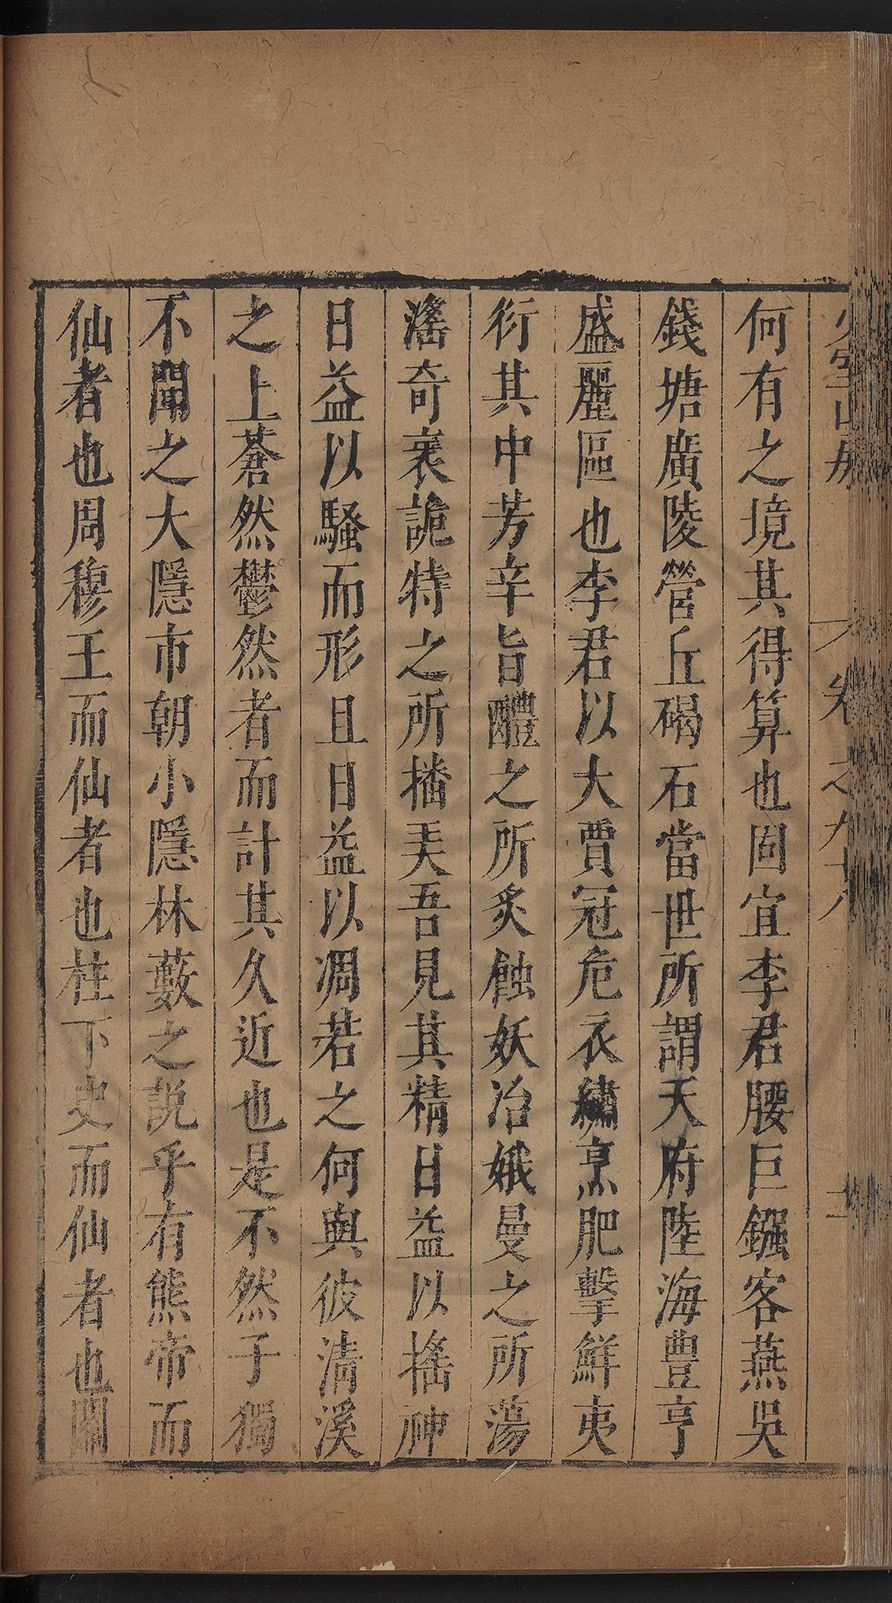 少室山房 卷之九十八 二
何有之境其得算也固宜李君腰巨鏹客燕吳
錢塘廣陵營丘碣石當世所謂天府陸海豊亨
盛麗區也李君以大賈冠危衣繡烹肥擊鮮夷
衍其中芳辛旨醴之所炙蝕妖冶娥曼之所蕩
滛奇衺詭特之所播⺩吾見其精日益以揺神
日益以騷而形且日益以凋若之何與彼清溪
之上蒼然鬱然者而計其久近也是不然子獨
不聞之大隱市朝小隱林藪之説乎有熊帝而
仙者也周穆王而仙者也柱下史而仙者也關